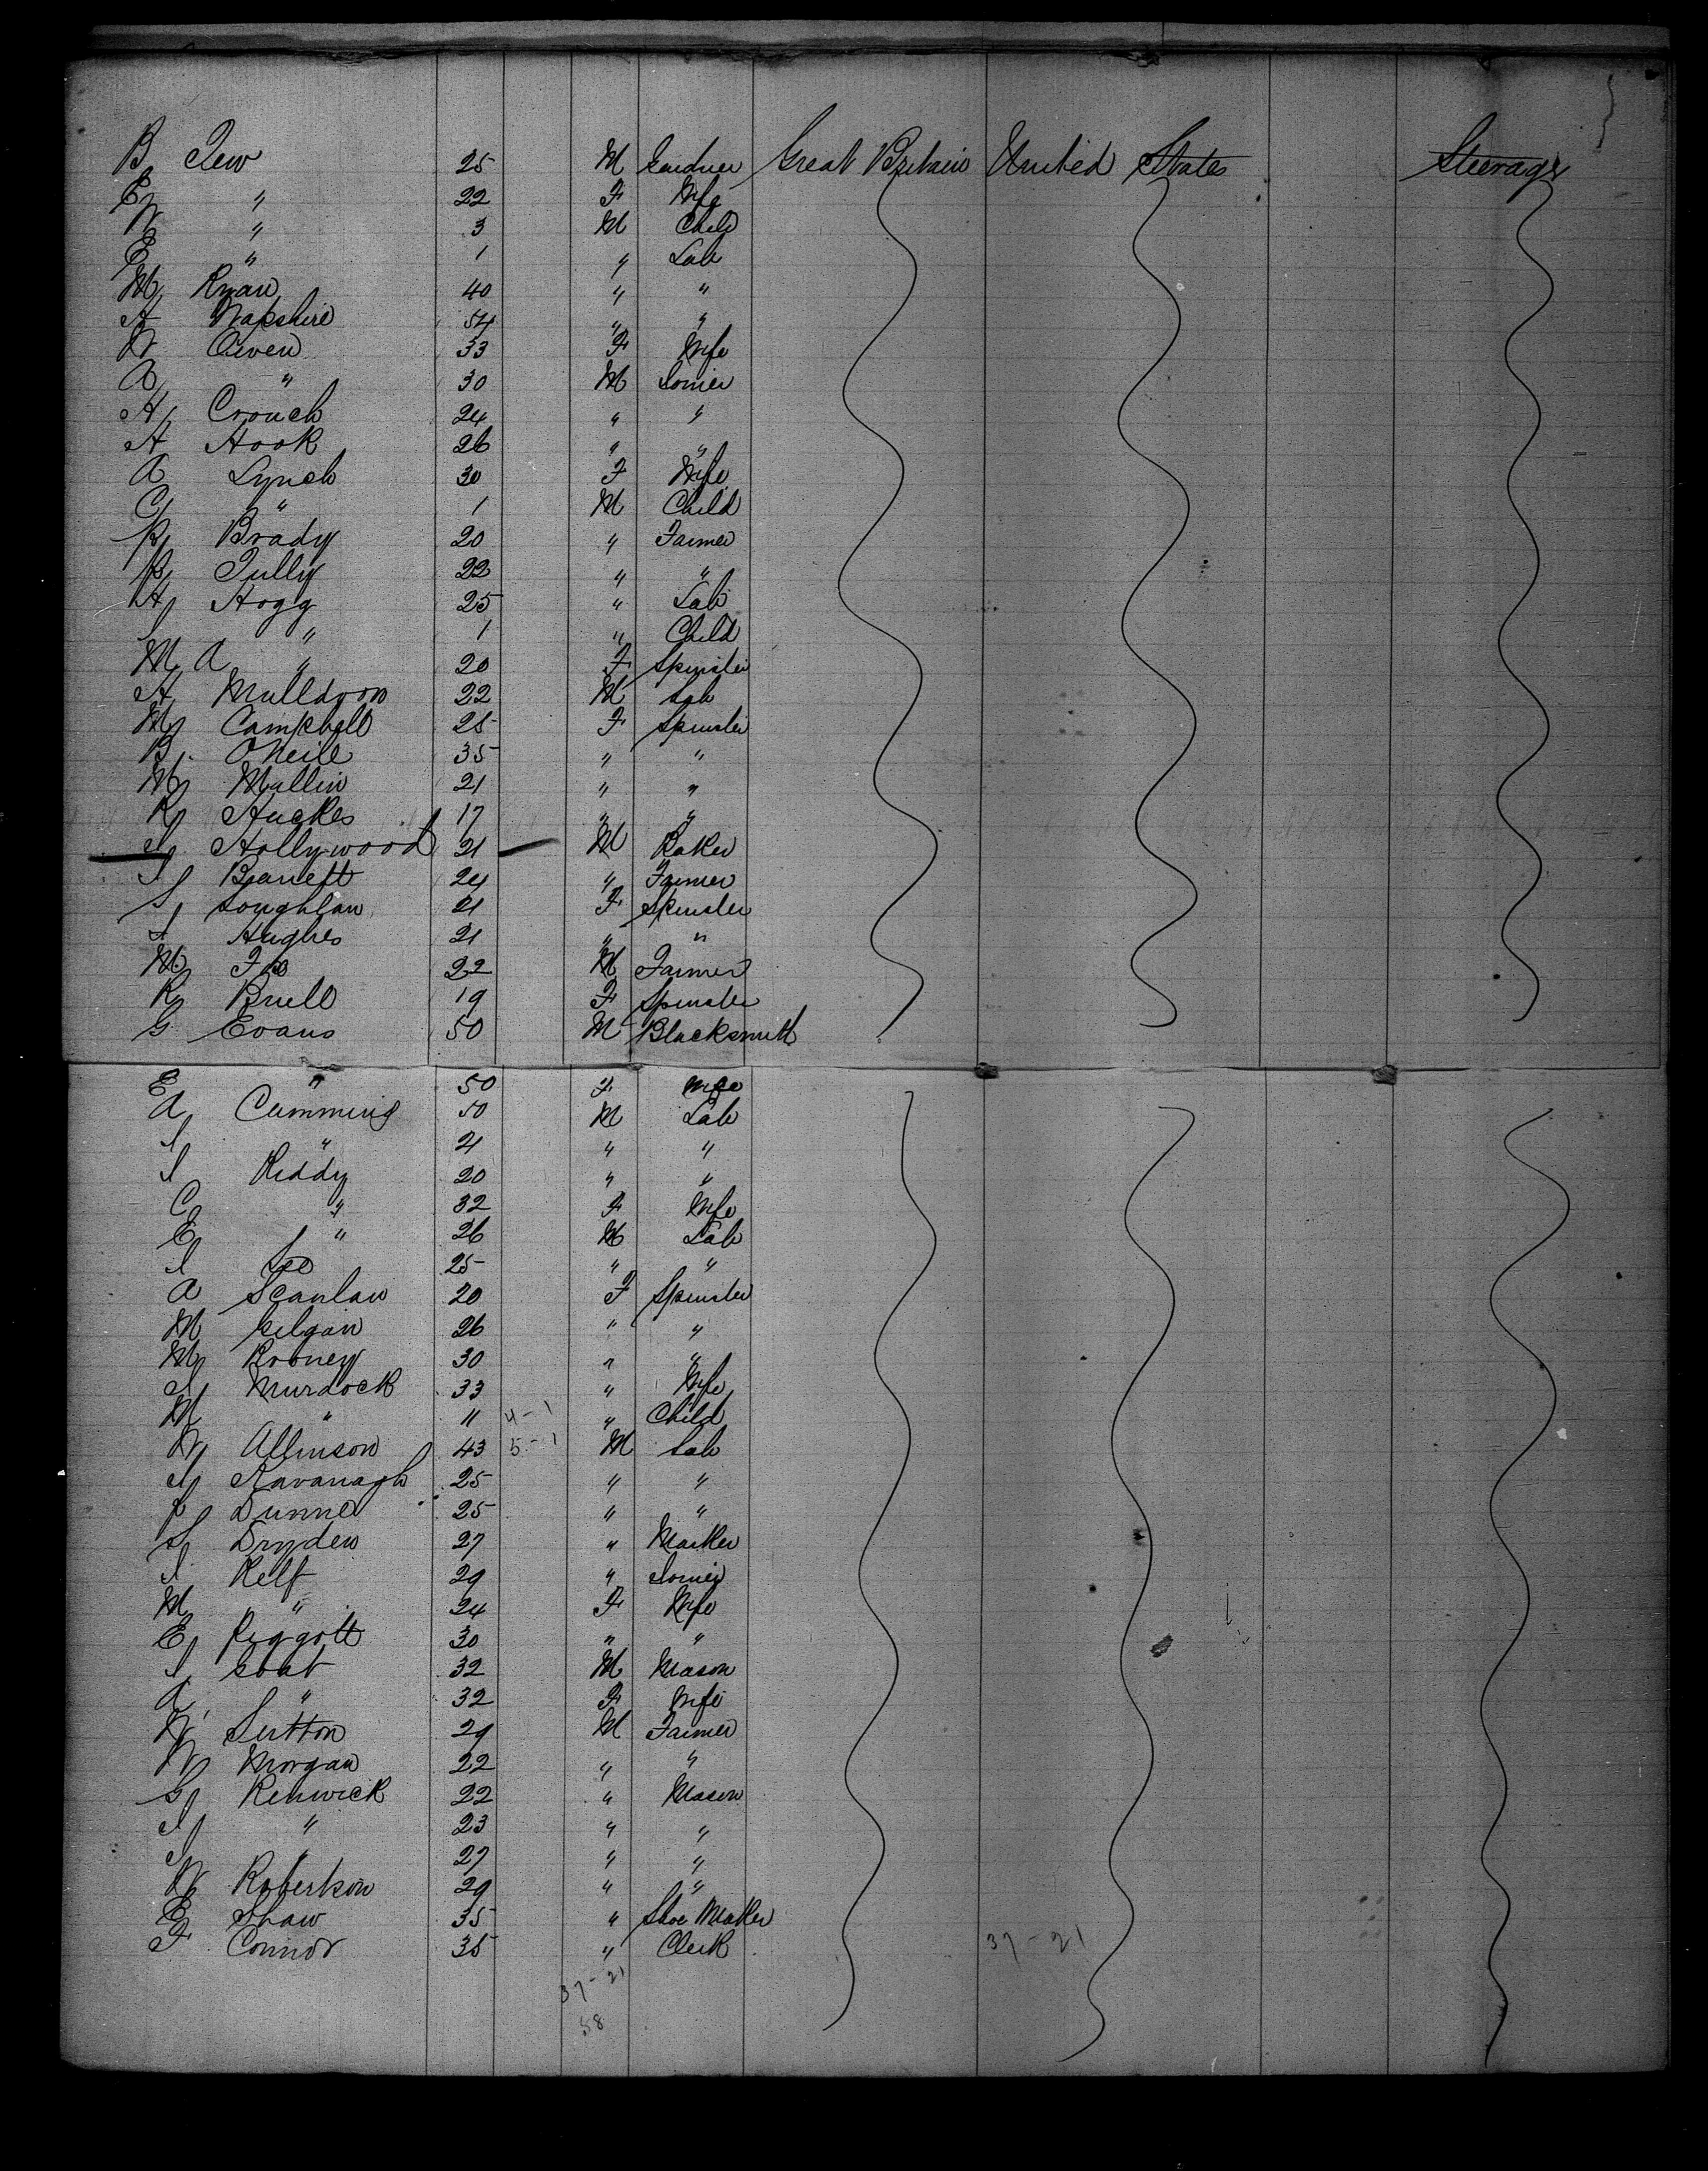 B Tew 25 M Gardner Great Britain United States Steerage
E " 22 F Wife
W " 3 M Child
E " 1 " Lab
M Ryan 40 " "
A Wapshire 54 " "
W Owen 33 F Wife
A " 30 M Joiner
H Crouch 24 " "
H Hook 26 " "
A Lynch 30 F Wife
C " 1 M Child
P Brady 20 " Farmer
P Tully 22 " "
H Hogg 25 " Lab
J " 1 " Child
M A " 20 F Spinster
H Mulldoon 22 M Lab
M Campbell 25 F Spinster
B O'Neill 35 " "
M Mallin 21 " "
K Huckes 17 " "
J Hollywood 21 M Baker
J Barrett 24 " Farmer
S Loughlan 21 F Spinster
J Hughes 21 " "
M Fox 22 M Farmer
K Bruell 19 F Spinster
G Evans 50 M Blacksmith
E " 50 F Wife
A Cumming 50 M Lab
J " 21 " "
J Reddy 20 " "
C " 32 F Wife
E " 26 M Lab
J Lee 25 " "
A Scanlan 20 F Spinster
M Gilgan 26 " "
M Rooney 30 " "
J Murdock 33 " Wife
M " 11 4-1 " Child
W Allinson 43 5-1 M Lab
J Kavanagh 25 " "
P Dunne 25 " "
S Dryden 27 " Marker
J Relf 29 " Joiner
M " 24 F Wife
E Piggott 30 " "
J Goat 32 M Mason
A " 32 F Wife
W Sutton 29 M Farmer
W Morgan 22 " "
G Renwick 22 " Mason
J " 23 " "
J " 27 " "
W Robertson 29 " "
E Shaw 35 " Shoe Maker
F Connor 35 " Clerk 37-21
37-21
58